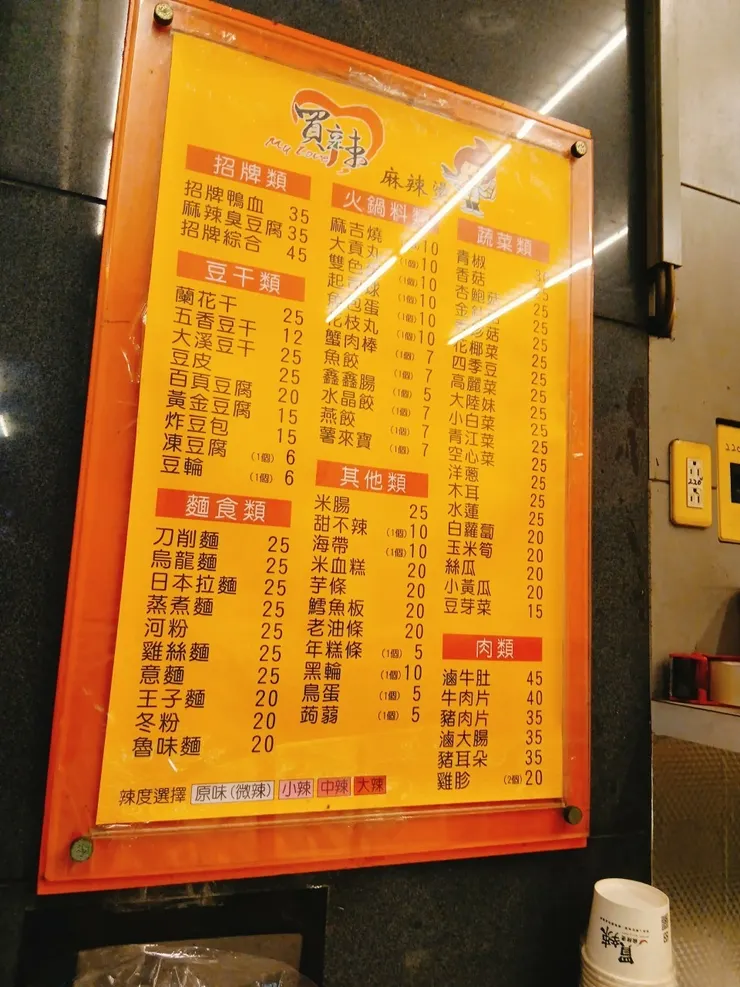 買辣
麻辣
招牌類
招牌鴨血 35
麻辣臭豆腐 35
招牌綜合 45
豆干類
蘭花干 25
五香豆干 12
大溪豆干 25
豆皮 25
百頁豆腐 20
黃金豆腐 15
炸豆包 15
凍豆腐 (1個) 6
豆輪 (1個) 6
麵食類
刀削麵 25
烏龍麵 25
日本拉麵 25
蒸煮麵 25
河粉 25
雞絲麵 25
意麵 25
王子麵 20
冬粉 20
魯味麵 20
火鍋料類
麻吉燒 10
大貢丸 (1個) 10
雙色 (1個) 10
起 球 (1個) 10
包蛋 (1個) 10
花枝丸 (1個) 10
蟹肉棒 (1個) 7
魚餃 (1個) 7
鑫鑫腸 (1個) 5
水晶餃 (1個) 7
燕餃 (1個) 7
薯來寶 (1個) 7
其他類
米腸 25
甜不辣 (1個) 10
海帶 (1個) 10
米血糕 20
芋條 20
鱈魚板 20
老油條 20
年糕條 (1個) 5
黑輪 (1個) 10
鳥蛋 (1個) 5
蒟蒻 (1個) 5
蔬菜類
青椒
香菇
杏鮑菇 25
金 菇 25
花椰菜 25
四季豆 25
高麗菜 25
大陸妹 25
小白菜 25
青江菜 25
空心菜 25
洋蔥 25
木耳 25
水蓮 25
白蘿蔔 20
玉米筍 20
絲瓜 20
小黃瓜 20
豆芽菜 15
肉類
滷牛肚 45
牛肉片 40
豬肉片 35
滷大腸 35
豬耳朵 35
雞胗 (2個) 20
辣度選擇 原味(微辣) 小辣 中辣 大辣
220
買辣